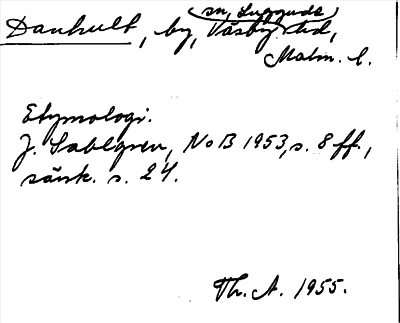 sn, Luggude
Danhult, by, Väsby hd,
Malm. l.
Etymologi.
J. Sahlgren, NoB 1953, s. 8 ff.,
särsk. s. 24.
Th. A. 1955.